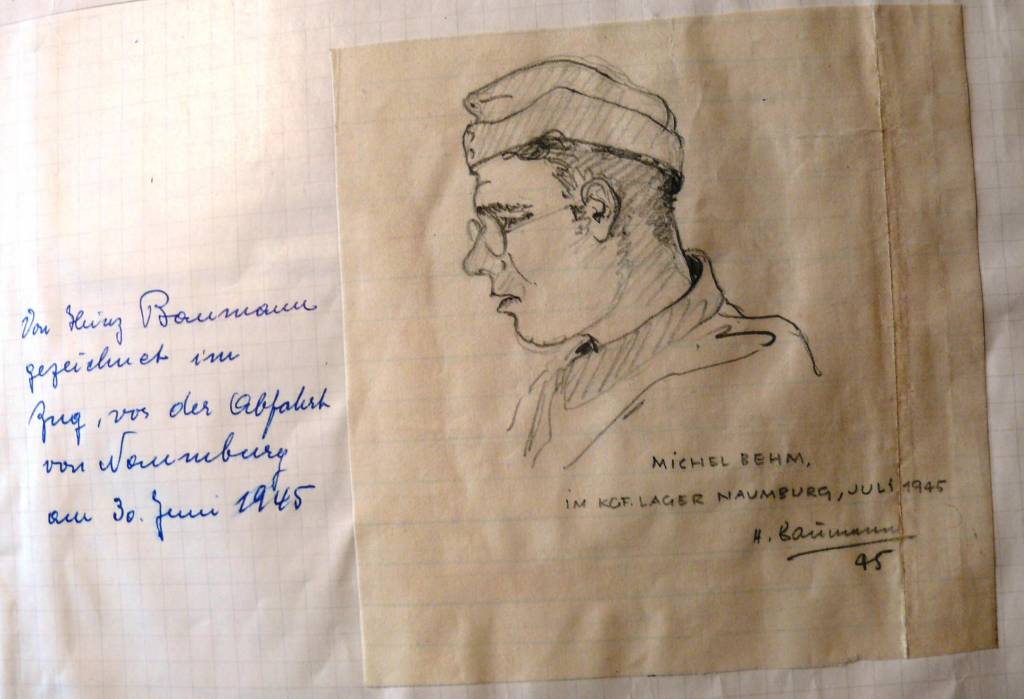 Von Heinz Baumann
gezeichnet im
Zug, vor der Abfahrt
von Naumburg
am 30. Juni 1945
MICHEL BEHM,
IM KGF. LAGER NAUMBURG, JULI 1945
H. Baumann
45